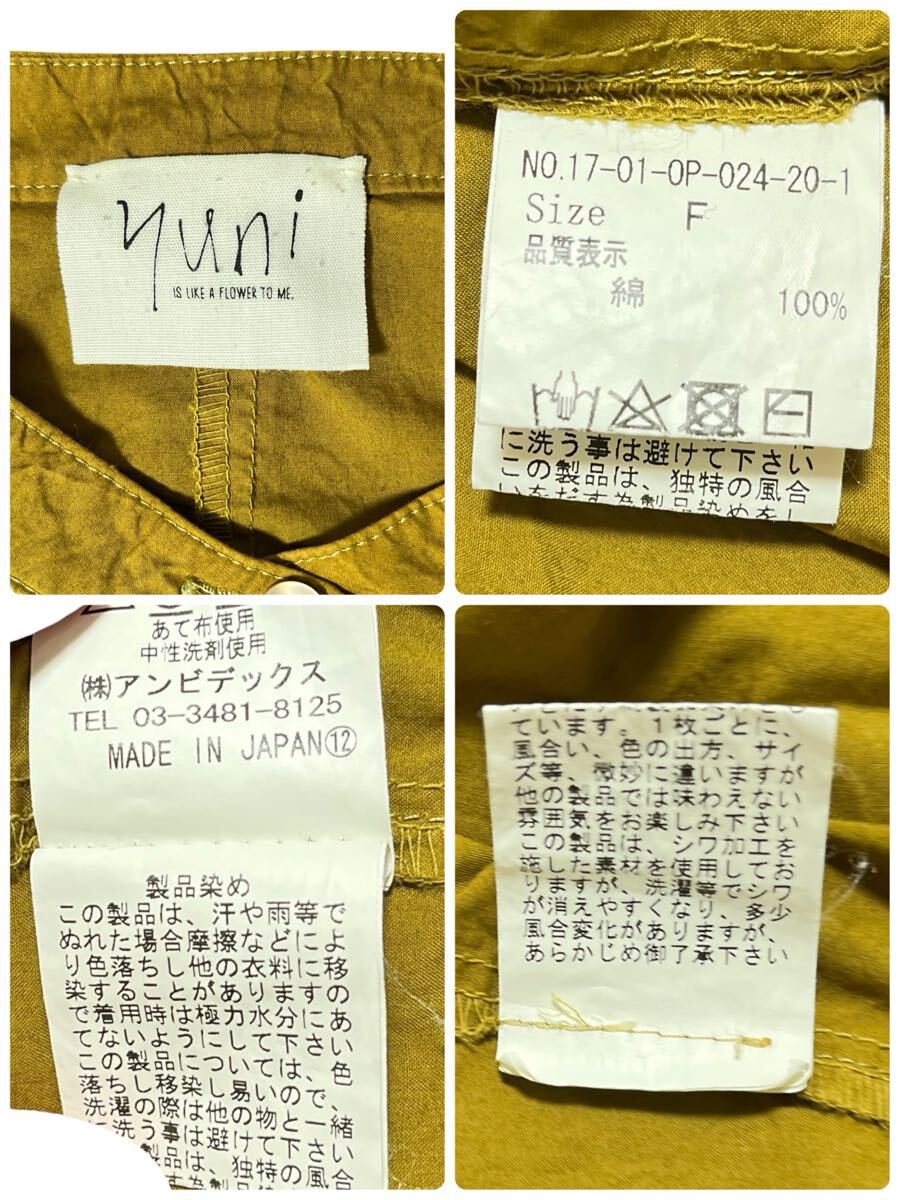 yuni
IS LIKE A FLOWER TO ME.
NO.17-01-OP-024-20-1
Size F
品質表示
綿 100%
に洗う事は避けて下さい
この製品は、独特の風合
いをだす為製品染めをし
あて布使用
中性洗剤使用
㈱アンビデックス
TEL 03-3481-8125
MADE IN JAPAN⑫
製品染め
この製品は、汗や雨等で
ぬれた場合摩擦などによ
り色落ちし他の衣料に移
染することがありますの
で着用時は極力水分にあ
てないようにして下さい
この製品については、色
落ちし移染し易いので、
洗濯の際は他の物と一緒
に洗う事は避けて下さい
製品は、独特の風合
ています。1枚ごとに、
風合い、色の出方、サイ
ズ等、微妙に違いますが
他の製品では味わえない
雰囲気をお楽しみ下さい
この製品は、シワ加工を
施した素材を使用してお
りますが、洗濯等でシワ
が消えやすくなり、多少
風合変化がありますが、
あらかじめ御了承下さい